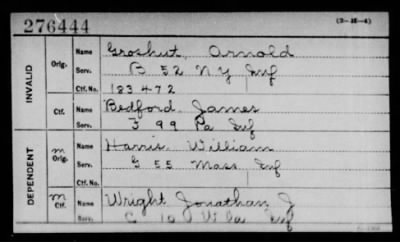 276444
(3-15-4)
INVALID Orig. Name Groshut, Arnold
Serv. B 52 N Y Inf
Ctf. No. 183472
Ctf. Name Bedford James
Serv. F 99 Pa Inf
DEPENDENT m Orig. Name Harris William
Serv. G 55 Mass Inf
Ctf. No.
m Ctf. Name Wright Jonathan J
Serv. C 10 Inf